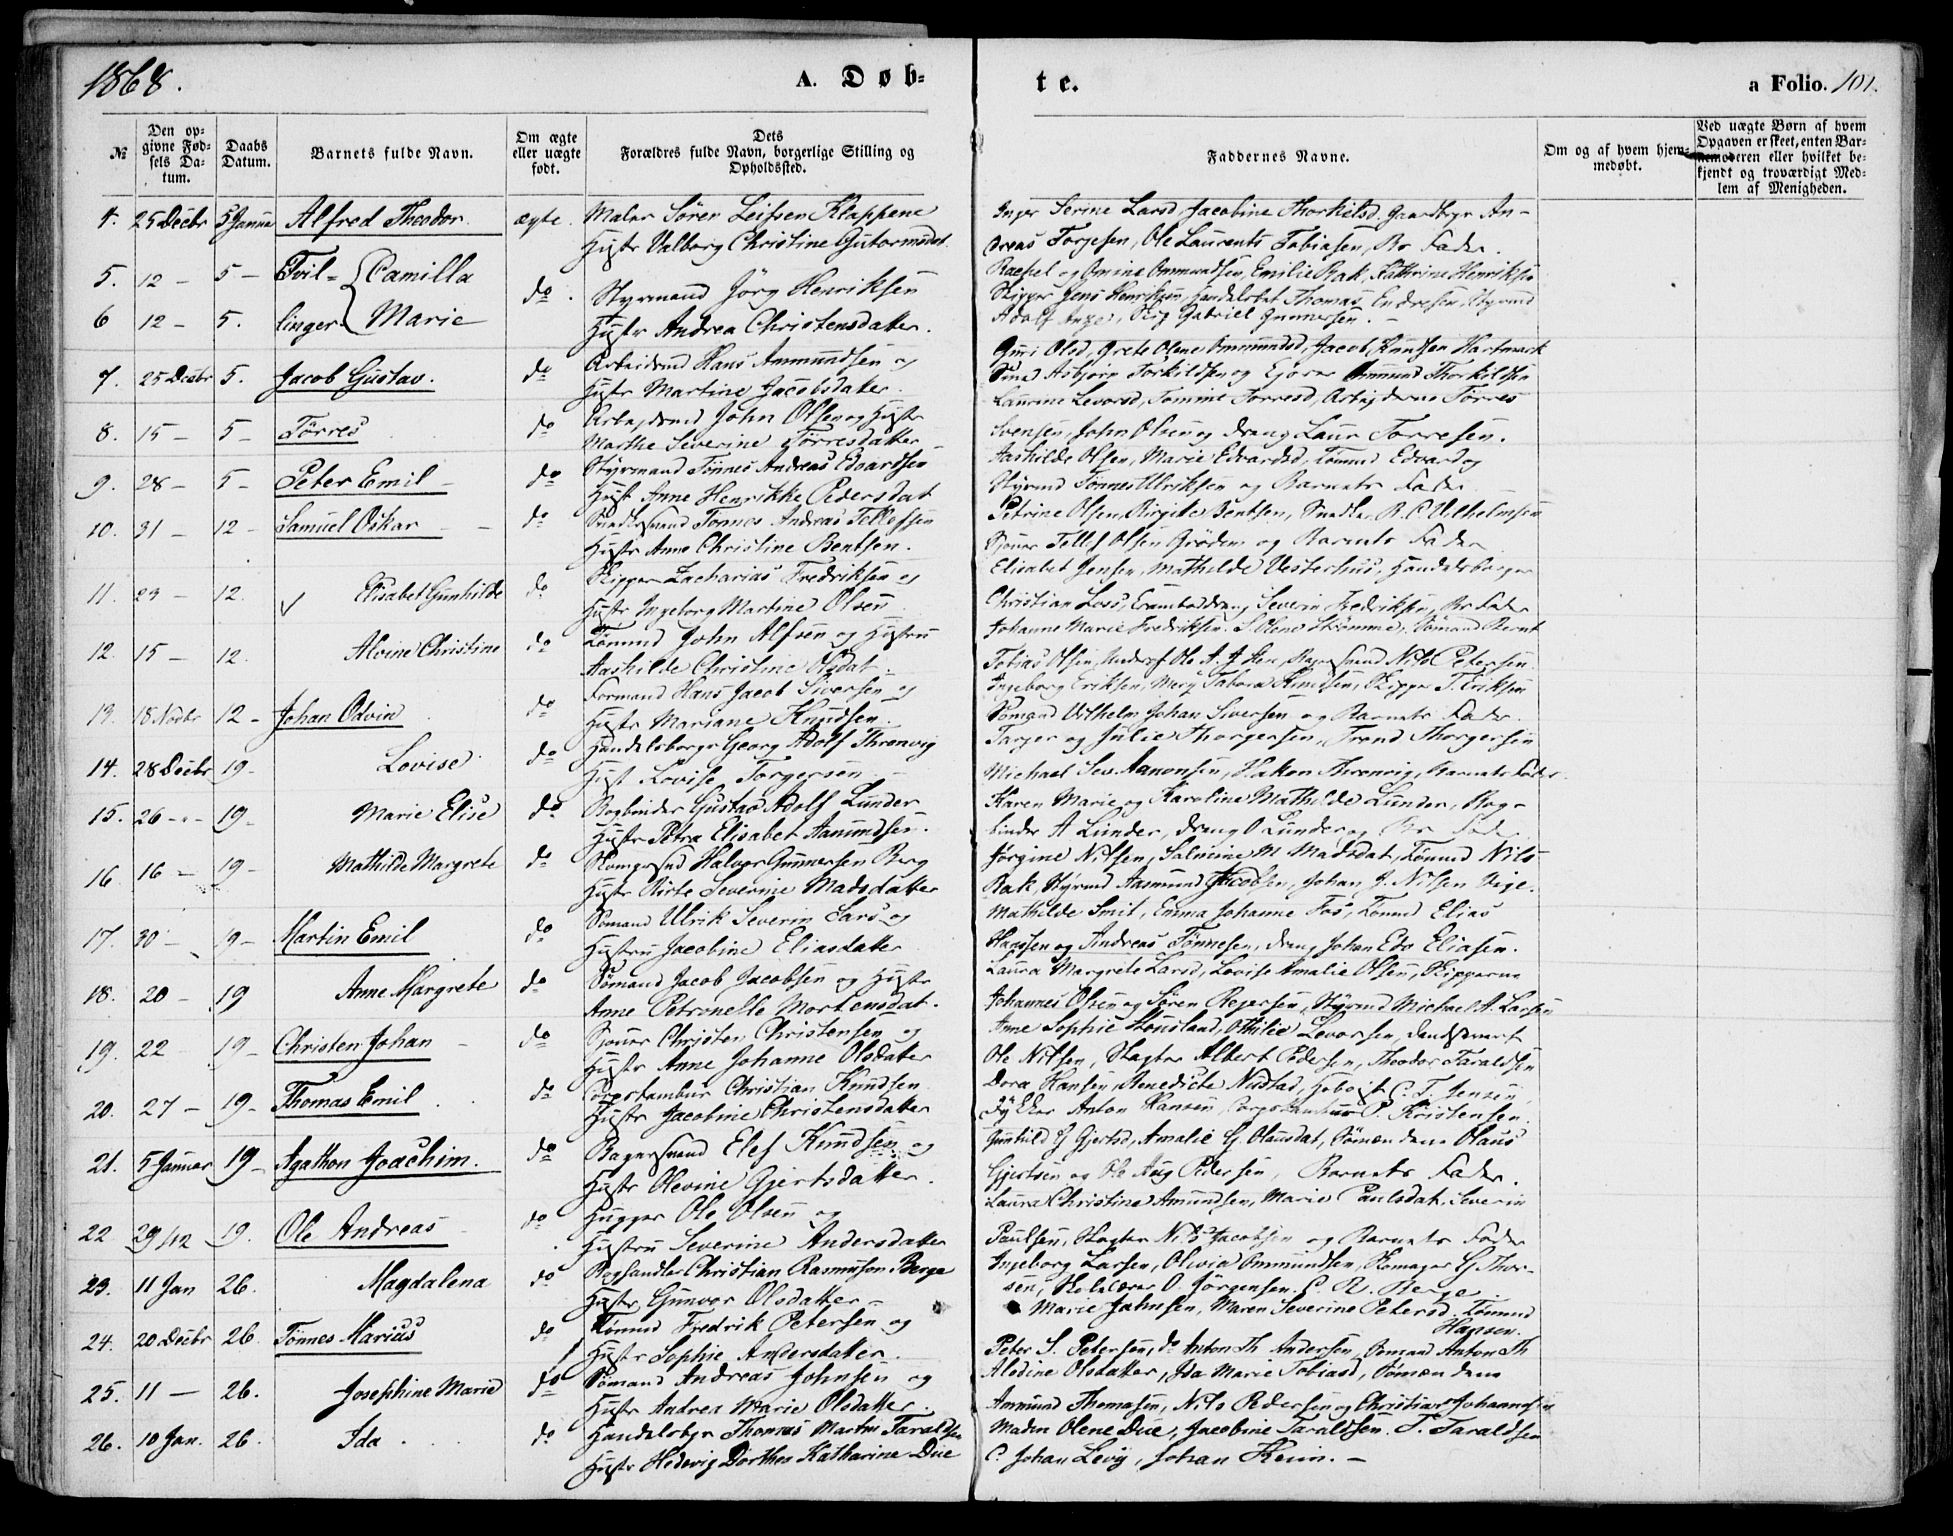 1868.
A. Døb-
te.
a Folio. 101.
№
Den op-
givne Fød-
sels Da-
tum.
Daabs
Datum.
Barnets fulde Navn.
Om ægte
eller uægte
født.
Dets
Forældres fulde Navn, borgerlige Stilling og
Opholdssted.
Faddernes Navne.
Om og af hvem hjem-
medøbt.
Ved uægte Børn af hvem
Opgaven er skeet, enten Bar-
nemoderen eller hvilket be-
kjendt og troværdigt Med-
lem af Menigheden.
4. 25 Decbr 5 Januar Alfred Theodor ægte. Maler Sören Leifsen Klappene
Hustr Valborg Christine Gutormsdat
Inger Serine Larsd Jacobine Thorkilsd. Gaardbrgr An-
dreas Torjesen, Ole Laurents Tobiasen, Br Fader.
5. 12 - 5 - Tvil- Camilla
6 12 - 5. linger Marie
do. Styrmand Jörg Henriksen
Hustr Andrea Christensdatter.
Rachel og Omine Ommundsen, Emilie Bak, Kathrine Henriksen
Skipper Jens Henriksen, Handelsbet Thomas Endresen, Styrmd
Adolf, Gabriel Gunnersen. -
7. 25 Decbr 5. Jacob Gustav. do Arbeidsmd Hans Ammundsen og
Hustr Martine Jacobsdatter.
Guri Olsd, Grete Olene Ommundsd, Jacob Knudsen Hartmark
Smed Asbjörn Torkildsen og Ommund Thorkildsen
8. 15 - 5 - Törres do Arbeidsmd John Olsen og Hustr
Marthe Severine Törresdatter
Laurine Levorsd, Tomine Torresd, Arbeiderne Törres
Svensen, John Olsen og dreng Laur Torresen.
9. 28 - 5 - Peter Emil - do Styrmand Tönnes Andreas Edvardsen
Hust Anne Henrikke Pedersdat
Aashilde Olsen, Marie Edvardsd, Tömmd Edvard og
Styrmd Tönnes Ulriksen og Barnets Fader
10. 31 - 12 - Samuel Oskar - - do Tonnes Andreas Tellefsen
Hustr Anne Christine Bentsen.
Petrine Olsen, Birgite Bentsen, Snedk. B. C. Vilhelmsen
Sjouer Tellef Olsen Grödem og Barnets Fader
11. 23 - 12. Elisabet Gunhilde do Skipper Zacharias Fredriksen og
Hustr Ingeborg Martine Olsen
Elisabet Jensen, Mathilde Vesterhus, Handelsborger
Christian Loss, Severin Fredriksen, Br Fader
12. 15 - 12. Alvine Christine do Tömmd John Alfsen og Hustru
Aashilde Christine Olsdat.
Johanne Marie Fredriksen. S. Olene Strömme, Sömand Bernt
Tobias Olsen, Underof Ole A. Bagersvend Nils Petersen
13. 18 Novbr 12 - Johan Odvin do Formand Hans Jacob Siversen og
Hustr Mariane Knudsen.
Ingeborg Eriksen, Mery Tabora Knudsen, Skipper T. Eriksen
Sömand Vilhelm Johan Siversen og Barnets Fader.
14. 28 Decbr 19 - Lovise. do Handelsborgr Georg Adolf Thronvig
Hust Lovise Torgersen -
Targer og Julie Thorgersen, Trond Thorgersen
Michael Sev. Aanonsen, Hakon Thronvig, Barnets Fader
15. 26 - - 19 - Marie Elise do Bogbinder Gustav Adolf Lunder
Hustr Petra Elisabet Aanundsen.
Karen Marie og Karoline Mathilde Lunder, Bog-
binder A Lunder, dreng O Lunder og Br Fader
16 16 - 19 - Mathilde Margrete do Skomgersvd Halvor Gunnersen Berg
Hustr Birte Severine Madsdatter
Jörgine Nilsen, Salmine M Madsdat, Tömmd Nils
Bak, Styrmd Aasmund Jacobsen, Johan J. Nilsen Vige.
17. 30 - 19 - Martin Emil do Sömand Ulrik Severin Lars og
Hustru Jacobine Eliasdatter
Mathilde Smit, Emma Johanne Fos, Tömmd Elias
Hansen og Andreas Tönnesen, dreng Johan Edv Eliasen.
18. 20 - 19 Anne Margrete do Sömand Jacob Jacobsen og Hustr
Anne Petronelle Mortensdat.
Laura Margrete Larsd, Lovise Amalie Olsen, Skipperne
Johannes Olsen og Sören Reiersen, Styrmd Michael A. Larsen
19. 22 19 - Christen Johan - do Sjouer Christen Christensen og
Hustr Anne Johanne Olsdatter
Anne Sophie Stousland, Othilie Levorsen,
Ole Nilsen, Slagter Albert Pedersen, Theodor Taraldsen
20. 27 - 19 - Thomas Emil do Corpstambur Christian Knudsen
Hustr Jacobine Christensdatter
Dora Hansen, Benedicte Nustad, Hoboist C. T. Jensen,
Anton Hansen, Corpstambur P. Kristensen.
21. 5 Januar 19 - Agathon Joachim. do Bagersvend Elef Knudsen og
Hustr Olevine Gjertsdatter.
Gunhild G Gjertsd, Amalie G. Olausdat, Sömændene Olaus
Gjertsen og Ole Aug Pedersen, Barnets Fader.
22. 29/12 19. Ole Andreas - do Hugger Ole Olsen og
Hustru Severine Andersdatter
Laura Christine Amundsen, Marie Paulsdat, Severin
Paulsen, Slagter Nils Jacobsen og Barnets Fader
23. 11 Jan 26. Magdalena do Christian Rasmuson Berge
Hustr, Gunvor Olsdatter -
Ingeborg Larsen, Olivia Ommundsen, Skomager G Thor-
sen, Skolelærer O. Jörgensen. C. R. Berge
24. 20 Decbr 26. Tönnes Marius do Tömmd Fredrik Petersen og
Hustr Sophie Andersdatter.
Marie Jahnsen, Maren Severine Petersd. Tömmd
Hansen.
Peter S. Petersen, do Anton Th Andersen, Sömand Anton Th
25. 11 - 26. Josephine Marie do Sömand Andreas Johnsen og
Hustr Andrea Marie Olsdatter.
Alodine Olsdatter, Ida Marie Tobiasd, Sömændene
Ammund Thomasen, Nils Pedersen og Christian Johannesen
26. 10 Jan. 26. Ida. do Handelsbgr Thomas Martin Taraldsen
Hustr Hedevig Dorthea Katharina Due
Madm Olene Due, Jacobine Taraldsen. T. Taraldsen
C. Johan Levy, Johan Keim. -